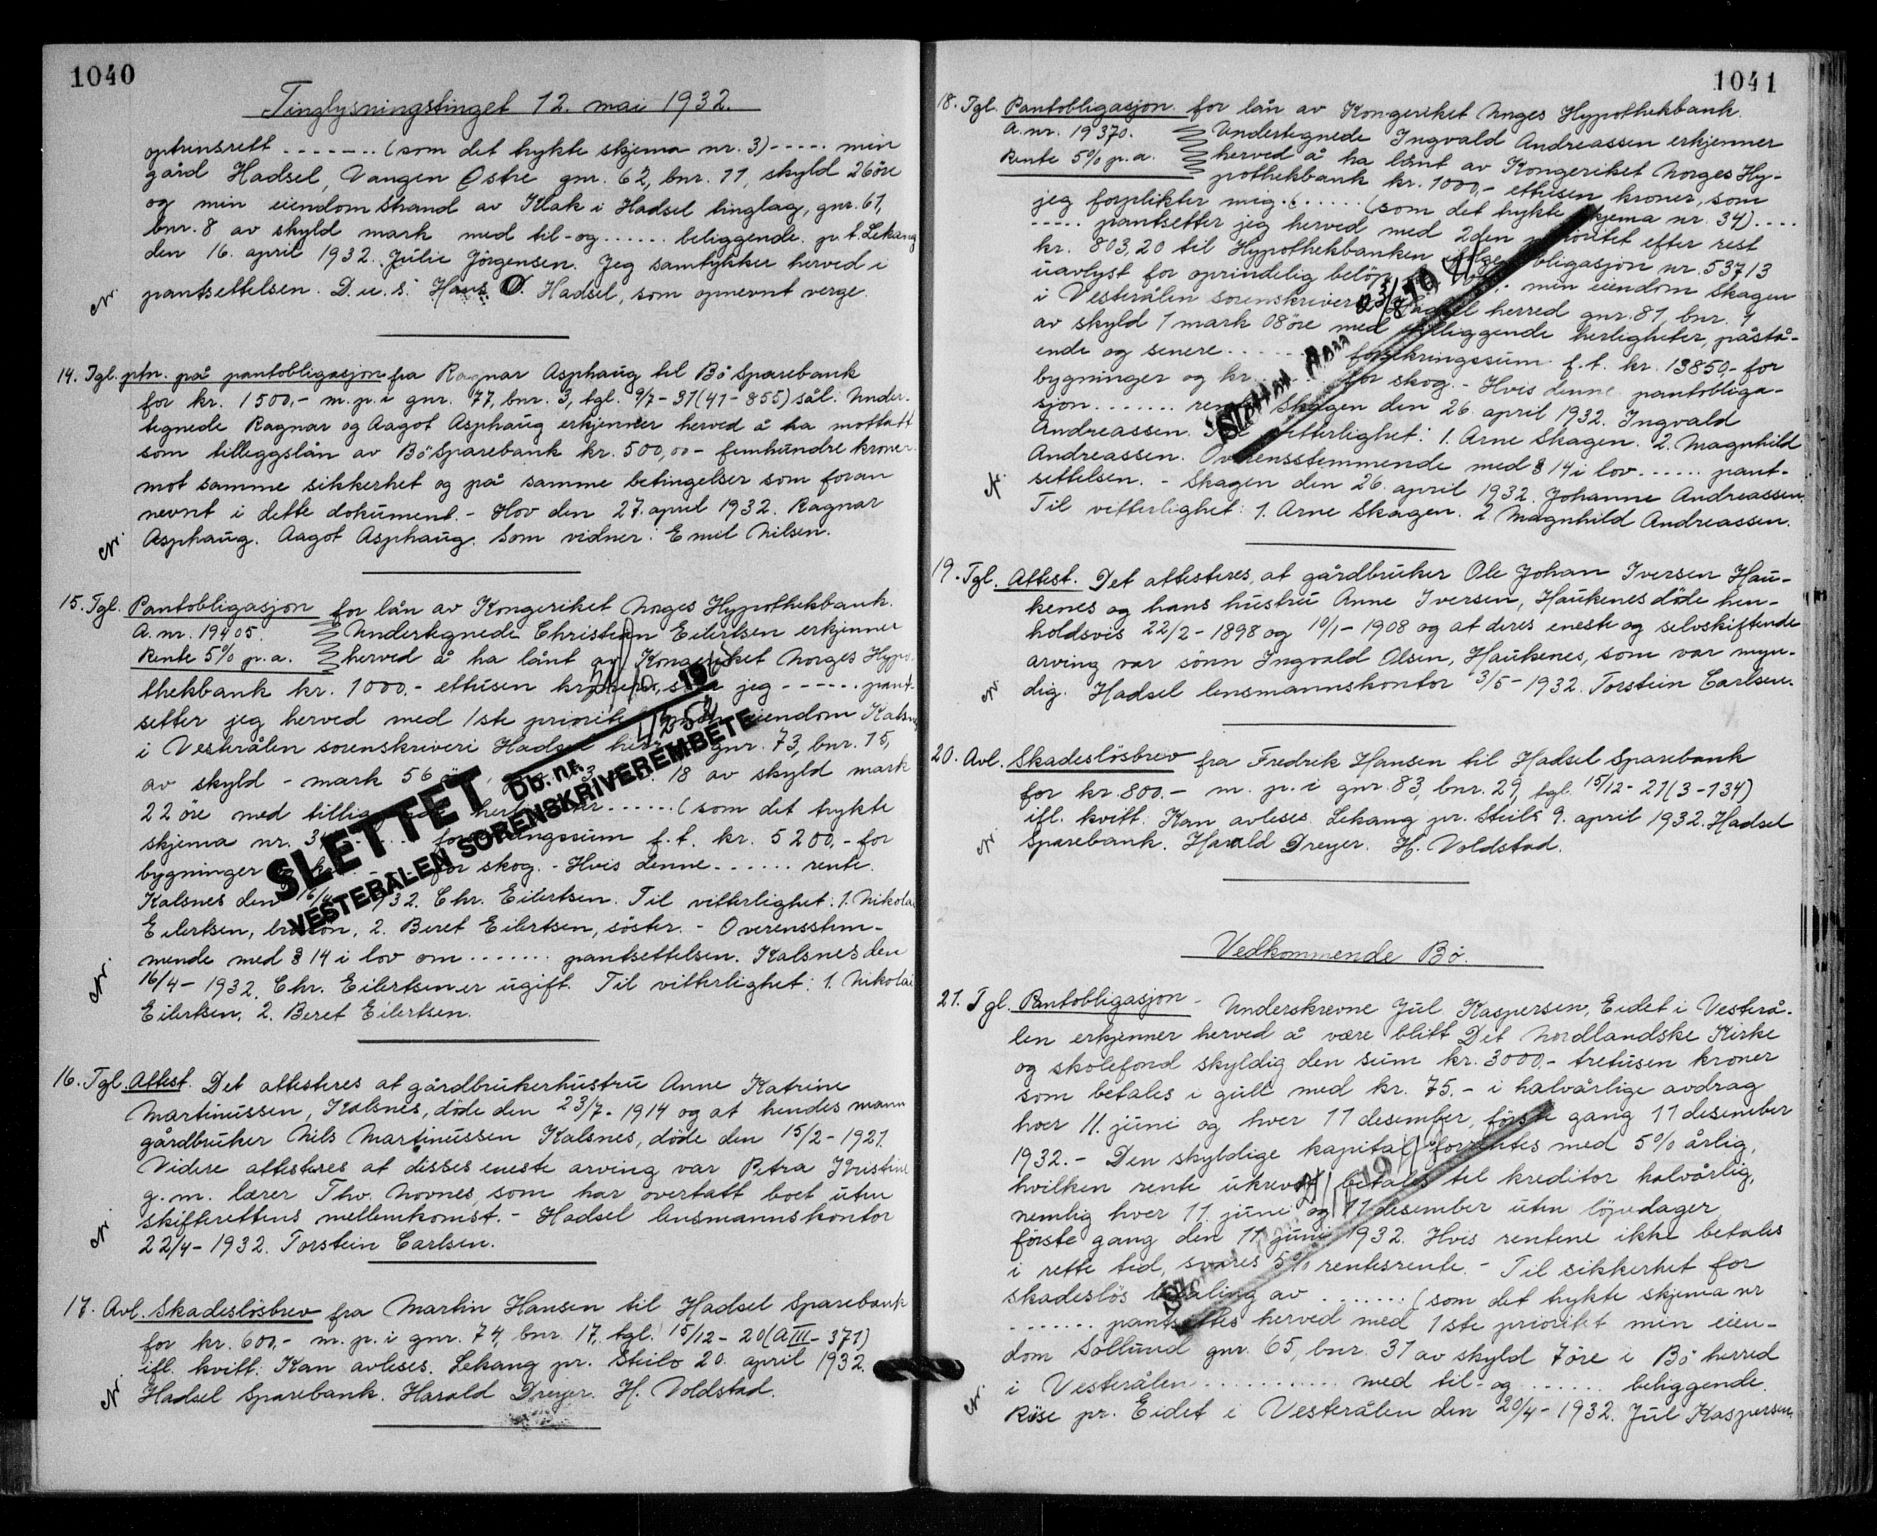 1040
Tinglysningstinget 12. mai 1932.
optrinsrett ........ (som det trykte skjema nr. 3) ..... min
gård Hadsel, Vangen Østre gnr. 62, bnr. 11, skyld 26 öre
og min eiendom Strand av Klak i Hadsel tinglag, gnr. 61,
bnr. 8 av skyld mark med til- og ...... beliggende. p.t. Lekang
den 16. april 1932. Julie Jörgensen. Jeg samtykker herved i
pantsettelsen. D.u.s. Hans O. Hadsel, som opnevnt verge.
14. Tgl. ptn. på pantobligasjon fra Ragnar Asphaug til Bö Sparebank
for kr. 1500,- m. p. i gnr. 77, bnr. 3, tgl. 9/7-31 (41-855) sål: Under-
tegnede Ragnar og Aagot Asphaug erkjenner herved å ha mottatt
som tilleggslån av Bö Sparebank kr. 500,00 - femhundre kroner
mot samme sikkerhet og på samme betingelser som foran
nevnt i dette dokument. - Hov den 27. april 1932. Ragnar
Asphaug. Aagot Asphaug. Som vidner: Emil Nilsen.
15. Tgl. Pantobligasjon for lån av Kongeriket Norges Hypothekbank.
A. nr. 19405. Undertegnede Christian Eilertsen erkjenner
Rente 5% p.a. herved å ha lånt av Kongeriket Norges Hypo-
thekbank kr. 1000.- ettusen kroner, som jeg ...... pant-
setter jeg herved med 1ste prioritet min eiendom Kalsnes
i Vesterålen sorenskriveri Hadsel herred gnr. 73, bnr. 15,
av skyld - mark 56 18 av skyld mark
22 öre med tillig ...... (som det trykte
skjema nr. 34 forsikringssum f.t. kr. 5200,- for
bygninger for skog. - Hvis denne ...... rente.
Kalsnes den 16/4 1932. Chr. Eilertsen. Til vitterlighet: 1. Nikolai
Eilertsen, 2. Beret Eilertsen, söster. - Overensstem-
mende med § 14 i lov om ....... pantsettelsen. Kalsnes den
16/4-1932. Chr. Eilertsen er ugift. Til vitterlighet: 1. Nikolai
Eilertsen, 2. Beret Eilertsen.
SLETTET
Db. nr. 4352
VESTERÅLEN SORENSKRIVEREMBETE
16. Tgl. Attest. Det attesteres at gårdbrukerhustru Anne Katrine
Martinussen, Kalsnes, döde den 23/7-1914 og at hendes mann
gårdbruker Nils Martinussen Kalsnes, döde den 15/2-1921.
Videre attesteres at disses eneste arving var Petra Kristine
g.m. lærer Thv. Novnes, som har overtatt boet uten
skifterettens mellemkomst. - Hadsel lensmannskontor
22/4-1932. Torstein Carlsen.
17. Avl. Skadeslösbrev fra Martin Hansen til Hadsel Sparebank
for kr. 600,- m. p. i gnr. 74, bnr. 17, tgl. 15/12-20 (A III-371)
ifl. kvitt: Kan avleses. Lekang pr. Steilo 20. april 1932.
Hadsel Sparebank. Harald Dreyer. H. Voldstad.
1041
18. Tgl. Pantobligasjon for lån av Kongeriket Norges Hypothekbank.
A. nr. 19370. Undertegnede Ingvald Andreassen erkjenner
Rente 5% p.a. herved å ha lånt av Kongeriket Norges Hy-
pothekbank kr. 1000,- ettusen kroner, som
jeg forplikter meg ...... (som det trykte skjema nr. 34) ....
..... pantsetter jeg herved med 2den prioritet efter rest
kr. 803,20 til Hypothekbanken ifölge obligasjon nr. 53713
uavlyst for oprindelig belöp min eiendom Skagen
i Vesterålen sorenskriveri Hadsel herred gnr. 81, bnr. 9
av skyld 1 mark 08 öre med tilliggende herligheter, påstå-
ende og senere ....... forsikringssum f.t. kr. 13850,- for
bygninger og kr. for skog. - Hvis denne pantobliga-
sjon ....... rente Skagen den 26. april 1932. Ingvald
Andreassen. Til vitterlighet: 1. Arne Skagen. 2. Magnhild
Andreassen. Overensstemmende med § 14 i lov ...... pant-
settelsen. - Skagen den 26. april 1932. Johanne Andreassen.
Til vitterlighet: 1. Arne Skagen. 2. Magnhild Andreassen.
19. Tgl. Attest. Det attesteres, at gårdbruker Ole Johan Iversen Hau-
kenes og hans hustru Anne Iversen, Haukenes döde hen-
holdsvis 22/2-1898 og 10/1-1908 og at deres eneste og selvskiftende
arving var sönn Ingvald Olsen, Haukenes, som var myn-
dig. Hadsel lensmannskontor 3/5-1932. Torstein Carlsen.
20. Avl. Skadeslösbrev fra Fredrik Hansen til Hadsel Sparebank
for kr. 800.- m. p. i gnr. 83, bnr. 29, tgl. 15/12-27 (3-134)
ifl. kvitt: Kan avleses. Lekang pr. Steilo 9. april 1932. Hadsel
Sparebank. Harald Dreyer. H. Voldstad.
Vedkommende Bö.
21. Tgl. Pantobligasjon - Underskrevne Jul Kaspersen, Eidet i Vesterå-
len erkjenner herved å være blitt Det Nordlandske Kirke
og skolefond skyldig den sum kr. 3000,- tretusen kroner
som betales i gull med kr. 75.- i halvårlige avdrag
hver 11. juni og hver 11 desember, förste gang 11 desember
1932. - Den skyldige kapital forrentes med 5% årlig,
hvilken rente ukrevet betales til kreditor halvårlig,
nemlig hver 11 juni og 11 desember uten löpedager,
förste gang den 11 juni 1932. Hvis rentene ikke betales
i rette tid, svares 5% rentesrente. - Til sikkerhet for
skadeslös betaling av ....... (som det trykte skjema nr
....... pantsettes herved med 1ste prioritet min eien-
dom Sollund gnr. 65, bnr. 31 av skyld 7 öre i Bö herred
i Vesterålen ........... med til- og ...... beliggende.
Rise pr. Eidet i Vesterålen den 20/4-1932. Jul Kaspersen.